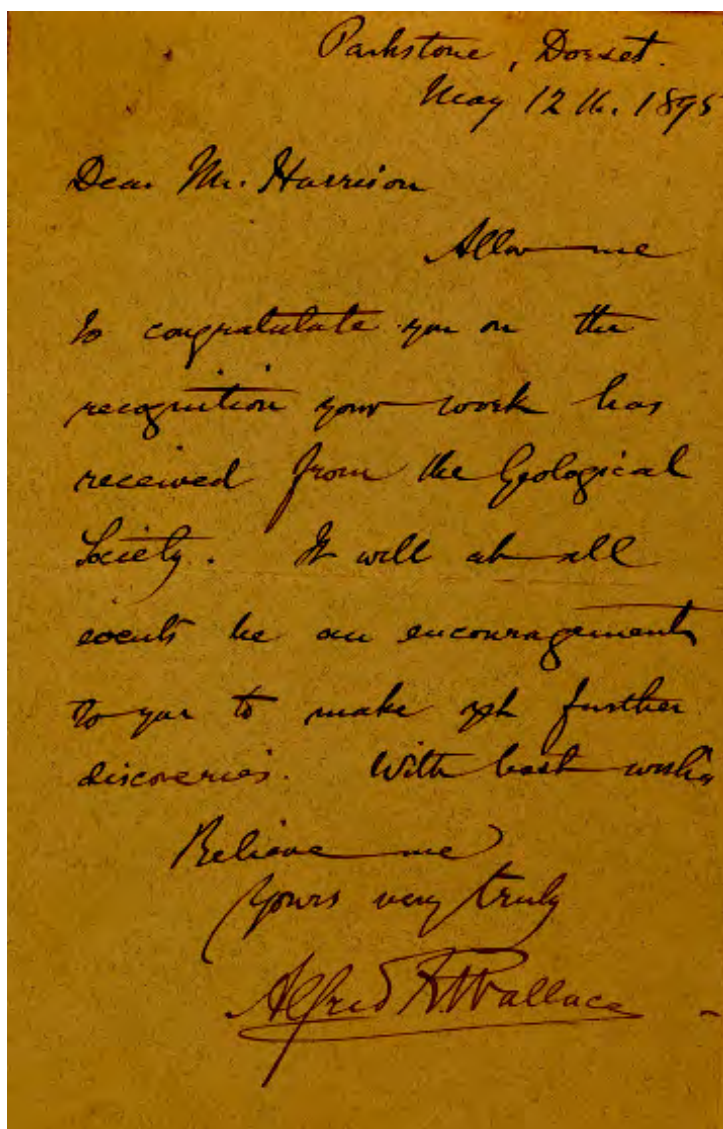 Parkstone, Dorset.
May 12th. 1895
Dear Mr. Harrison
Allow me
to congratulate you on the
recognition your work has
received from the Geological
Society. It will at all
events be an encouragement
to you to make yet further
discoveries. With best wishes
Believe me
Yours very truly
Alfred R. Wallace